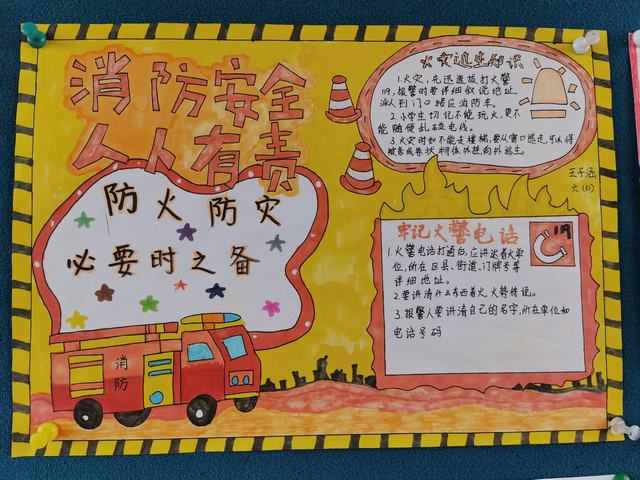 消防安全
人人有责
防火防灾
必要时之备
消
防
火灾逃生知识
1.火灾,先迅速拨打火警
119,报警时要详细叙说地址。
派人到门口接应消防车。
2.小学生切记不能玩火,更不
能随便乱碰电线。
3.火灾时如不能走楼梯,要从窗口逃走,可以将
被条或条状物体外挂向外逃生。
王子涵
六(10)
牢记火警电话
119
1.火警电话打通后,应讲述着火单
位,所在区县、街道、门牌号等
详细地址。
2.要讲清什么东西着火,火势情况。
3.报警人要讲清自己的名字,所在单位和
电话号码